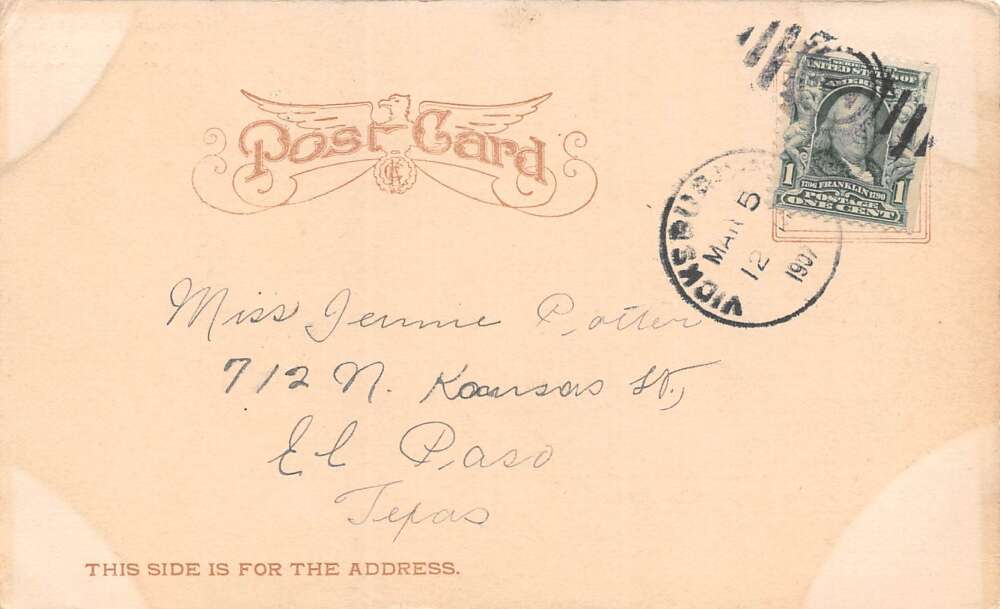 Post Card
SERIES 1902
UNITED STATES OF
AMERICA
1
1706 FRANKLIN 1790
POSTAGE
ONE CENT
1
VICKSBURG
MAR 5
12
1907
Miss Jennie Potter
712 N. Kansas St.,
El Paso
Texas
THIS SIDE IS FOR THE ADDRESS.